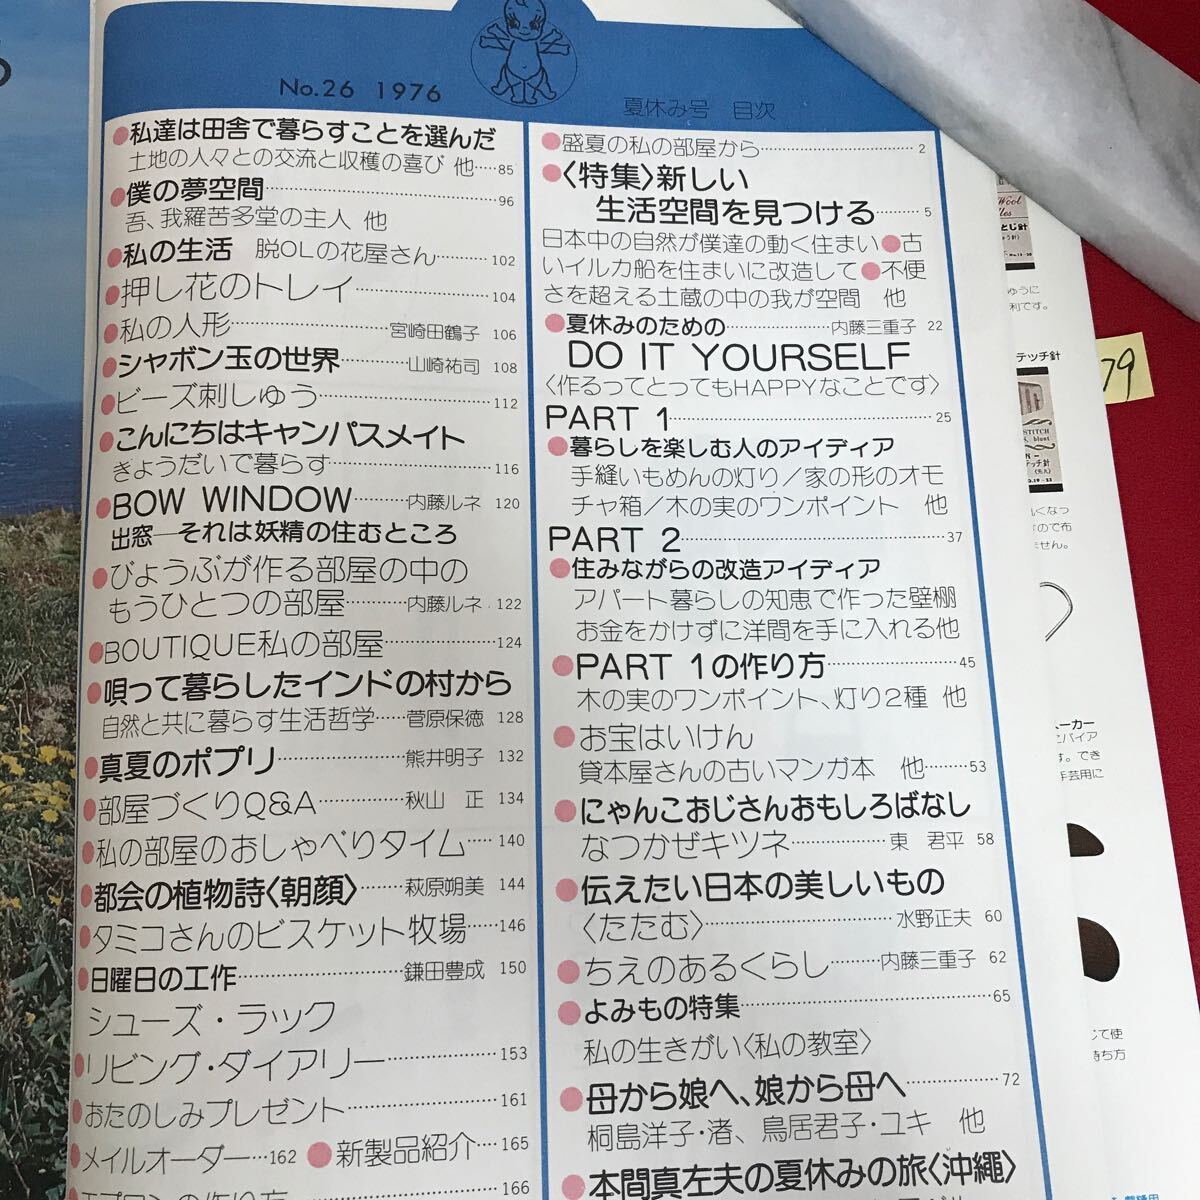 No.26 1976
夏休み号 目次
●盛夏の私の部屋から……2
●〈特集〉新しい
生活空間を見つける……5
日本中の自然が僕達の動く住まい●古
いイルカ船を住まいに改造して●不便
さを超える土蔵の中の我が空間 他
●夏休みのための……内藤三重子 22
DO IT YOURSELF
〈作るってとってもHAPPYなことです〉
PART 1……25
●暮らしを楽しむ人のアイディア
手縫いもめんの灯り／家の形のオモ
チャ箱／木の実のワンポイント 他
PART 2……37
●住みながらの改造アイディア
アパート暮らしの知恵で作った壁棚
お金をかけずに洋間を手に入れる他
●PART 1の作り方……45
木の実のワンポイント、灯り2種 他
●お宝はいけん
貸本屋さんの古いマンガ本 他……53
●にゃんこおじさんおもしろばなし
なつかぜキツネ……東 君平 58
●伝えたい日本の美しいもの
〈たたむ〉……水野正夫 60
●ちえのあるくらし……内藤三重子 62
●よみもの特集……65
私の生きがい〈私の教室〉
●母から娘へ、娘から母へ……72
桐島洋子・渚、鳥居君子・ユキ 他
●本間真左夫の夏休みの旅〈沖縄〉
●私達は田舎で暮らすことを選んだ
土地の人々との交流と収穫の喜び 他……85
●僕の夢空間……96
吾、我羅苦多堂の主人 他
●私の生活 脱OLの花屋さん……102
●押し花のトレイ……104
●私の人形……宮崎田鶴子 106
●シャボン玉の世界……山崎祐司 108
●ビーズ刺しゅう……112
●こんにちはキャンパスメイト
きょうだいで暮らす……116
●BOW WINDOW……内藤ルネ 120
出窓―それは妖精の住むところ
●びょうぶが作る部屋の中の
もうひとつの部屋……内藤ルネ 122
●BOUTIQUE私の部屋……124
●唄って暮らしたインドの村から
自然と共に暮らす生活哲学……菅原保徳 128
●真夏のポプリ……熊井明子 132
●部屋づくりQ&A……秋山 正 134
●私の部屋のおしゃべりタイム……140
●都会の植物詩〈朝顔〉……萩原朔美 144
●タミコさんのビスケット牧場……146
●日曜日の工作……鎌田豊成 150
シューズ・ラック
●リビング・ダイアリー……153
●おたのしみプレゼント……161
●メイルオーダー…162 ●新製品紹介…165
●エプロンの作り方……166
79
Wool
とじ針
テッチ針
STITCH